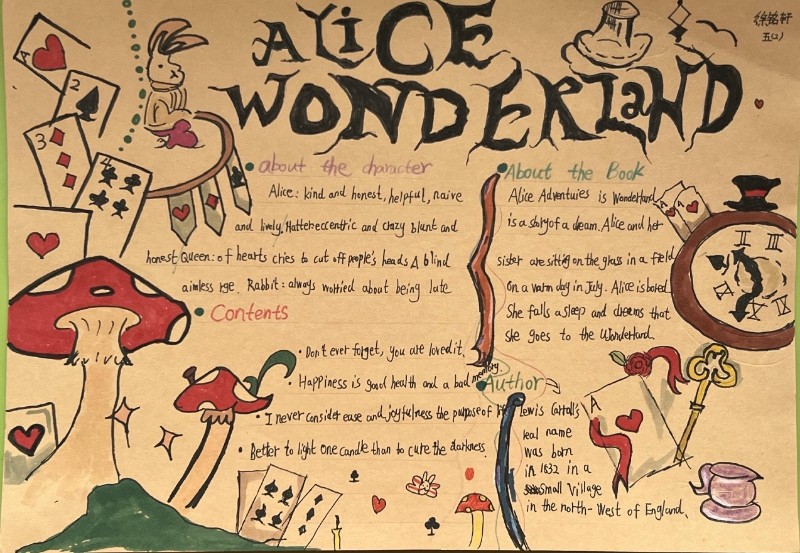 ALICE
WONDERLAND
徐铭轩
五(2)
about the character
Alice: kind and honest, helpful, naive
and lively. Hatter: eccentric and crazy blunt and
honest Queen: of hearts cries to cut off people's heads A blind
aimless rge. Rabbit: always worried about being late
Contents
Don't ever forget, you are loved it.
Happiness is good health and a bad memory.
I never consider ease and joyfulness the purpose of
Better to light one candle than to cure the darkness.
About the Book
Alice Adventuies is Wonderland
is a story of a dream. Alice and her
sister are sitting on the grass in a field
on a warm day in July. Alice is bored
She falls asleep and dreems that
she goes to the Wonderland.
Author
Lewis Carroll's
real name
was born
in 1632 in a
small Village
in the north-West of England.
A
2
3
4
A
II
III